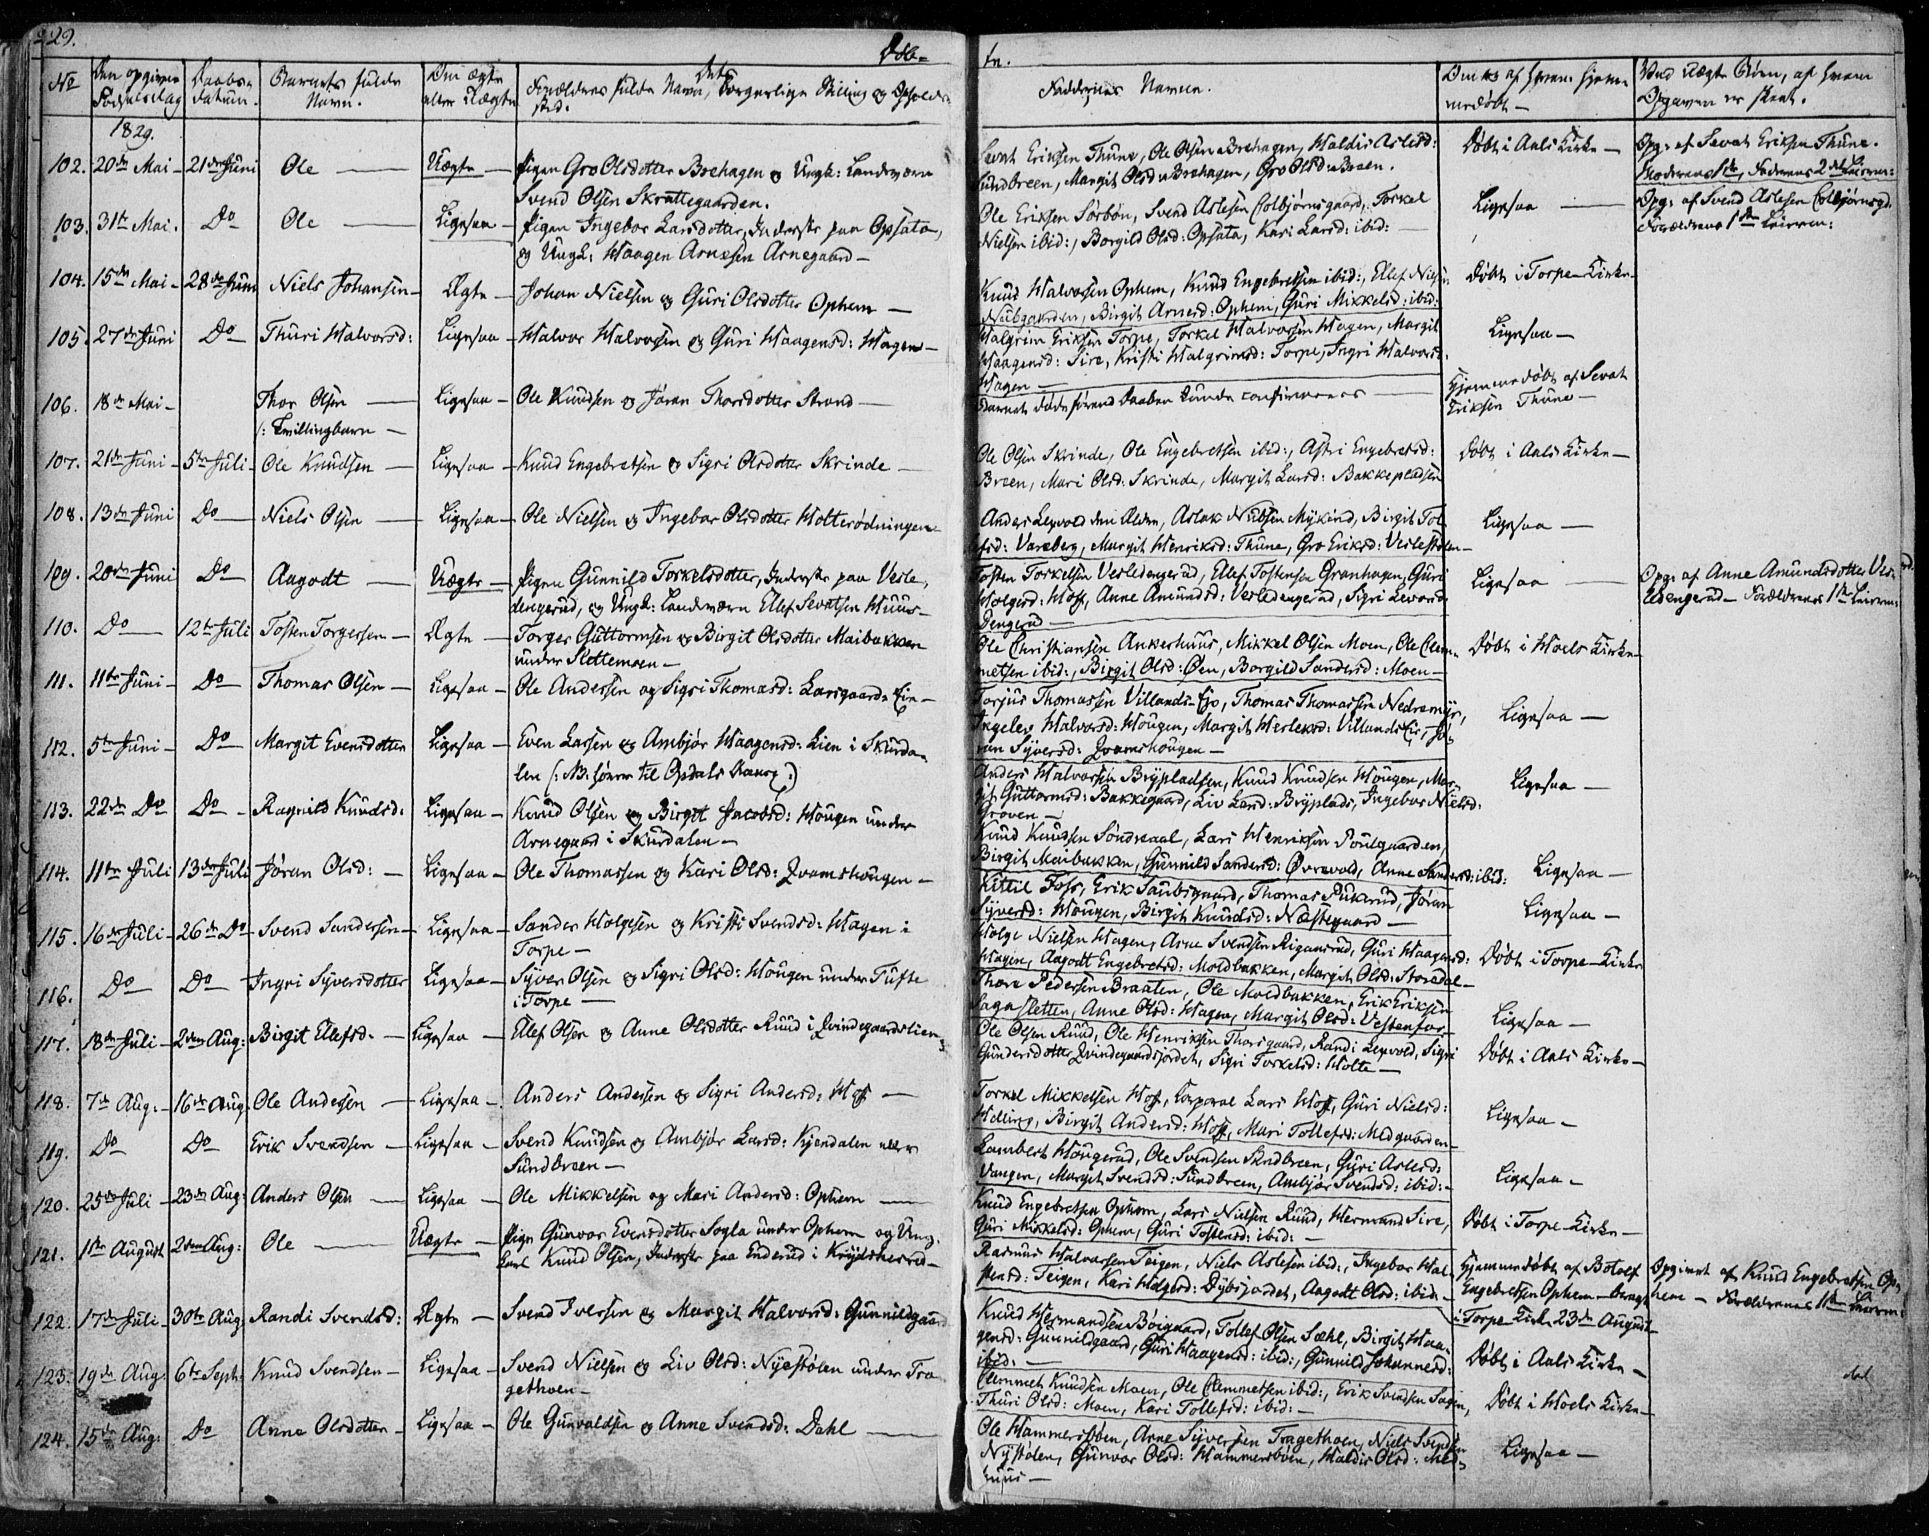 229.
Døb-
te.
No
Den opgivne Fødselsdag
Daabs-datum.
Barnets fulde Navn.
Om ægte eller Uægte
Forældrenes fulde Navn, Borgerlige Stilling og Opholds-sted.
Faddernes Navne.
Om og af hvem hjemmedøbt —
Ved Uægte Børn, af hvem Opgaven er skeet.
1829.
102. 20de Mai — 21de Juni Ole — Uægte — Pigen Gro Olsdotter Brehagen & Ungk: Landværn
Svend Olsen Skrattegaarden.
Sevat Eriksen Thune, Ole Olsen Brehagen, Haldis Aslesd:
Sundbreen, Margit Olsd: Brehagen, Gro Olsd: Breen.
Døbt i Aals Kirke —
Opg: af Sevat Eriksen Thune.
Moderens 1ste, Faderens 2det Leierm:
103. 31te Mai. Do Ole — Ligesaa — Pigen Ingebor Larsdotter, Inderste paa Opsata,
& Ungk: Haagen Arnesen Arnegaard —
Ole Eriksen Sørbøn, Svend Aslesen Colbjørnsgaard, Torkel
Nielsen ibid:, Borgild Olsd: Opsata, Kari Larsd: ibid: —
Ligesaa —
Opg: af Svend Aslesen Colbjørnsgd.
Forældrenes 1ste Leierm:
104. 15de Mai — 28de Juni Niels Johansen — Ægte — Johan Nielsen & Guri Olsdotter Ophem —
Knud Halvorsen Ophem, Knud Engebretsen ibid:, Ellef Nielsen
Nubgaarden, Birgit Arnesd: Ophem, Guri Mikkelsd: ibid:
Døbt i Torpe-Kirke —
105. 27de Juni Do Thuri Halvorsd: Ligesaa — Halvor Halvorsen & Guri Haagensd: Hagen —
Halgrim Eriksen Torpe, Torkel Halvorsen Hagen, Margit
Haagensd: Sire, Kristi Halgrimsd: Torpe, Ingri Halvorsd:
Hagen —
Ligesaa —
106. 18de Mai — Thor Olsen — Ligesaa — Ole Knudsen & Jøran Thorsdotter Strand —
/: Tvillingbarn —
Barnet døde førend Daaben kunde confirmeres —
Hjemmedøbt af Sevat
Eriksen Thune —
107. 21de Juni — 5te Juli — Ole Knudsen — Ligesaa — Knud Engebretsen & Sigri Olsdotter Skrinde —
Ole Olsen Skrinde, Ole Engebretsen ibid:, Astri Engebretsd:
Breen, Mari Olsd: Skrinde, Margit Larsd: Bakkepladsen
Døbt i Aals Kirke —
108. 13de Juni Do — Niels Olsen — Ligesaa — Ole Nielsen & Ingebor Olsdotter Holterødningen —
Anders Leqvold den Ældre, Aslak Nubsen Mykind, Birgit Tol-
lefsd: Vareberg, Margit Henriksd: Thune, Gro Eriksd: Veslestølen —
Ligesaa —
109. 20de Juni Do Aagodt — Uægte — Pigen Gunnild Torkelsdotter, Inderste paa Vesle-
dengerud, og Ungk: Landværn Ellef Sevatsen Huus —
Tosten Torkelsen Vesledengerud, Ellef Tostensen Granhagen, Guri
Holgersd: Hoff, Anne Amundsd: Vesledengerud, Sigri
Dengerud —
Ligesaa —
Opg: af Anne Amundsdotter Ves-
ledengerud — Forældrenes 1ste Leierm:
110. Do — 12te Juli Tosten Torgersen — Ægte — Torger Guttormsen & Birgit Olsdotter Maibakken
under Slettemoen —
Ole Christiansen Ankerhuus, Mikkel Olsen Moen, Ole Clem-
metsen ibid:, Birgit Olsd: Øen, Borgild Sandersd: Moen —
Døbt i Hoels Kirke —
111. 11te Juni — Do — Thomas Olsen — Ligesaa — Ole Andersen og Sigri Thomasd: Larsgaards-Eie —
Torjus Thomassen Villands-Eje, Thomas Thomassen Nedremyr,
Ingelev Halvorsd: Hougen, Margit Herleksd: Villands Eie, Jø-
ran Syversd: Qvamshougen —
Ligesaa —
112. 5te Juni — Do — Margit Evensdotter Ligesaa — Even Larsen & Ambjør Haagensd: Lien i Skurda-
len (: NB: hører til Opdals Annex :)
Anders Halvorsen Brypladsen, Knud Knudsen Hougen, Mar-
git Guttormsd: Bakkegaard, Liv Larsd: Bryplads, Ingebor Nielsd:
Groven —
Ligesaa —
113. 22de Do Do — Ragnild Knudsd: Ligesaa — Knud Olsen & Birgit Jacobsd: Hougen under
Arnegaard i Skurdalen —
Knud Knudsen Søndreaal, Lars Henriksen Poulgaarden,
Birgit Maibakken, Gunnild Sandersd: Øvrevold, Anne Sandersd: ibid:
Ligesaa —
114. 11te Juli 13de Juli Jøran Olsd: — Ligesaa — Ole Thomassen og Kari Olsd: Qvamshougen —
Kittil Foss, Erik Taubsgaard, Thomas Pukerud, Jøran
Syversd: Hougen, Birgit Knudsd: Næstegaard —
Ligesaa —
115. 16de Juli — 26de Do — Svend Sandersen — Ligesaa — Sander Holgesen & Kristi Svendsd: Hagen i
Torpe —
Holge Nielsen Hagen, Arne Svendsen Rigansrud, Guri Haagensd:
Hagen, Aagodt Engebretsd: Moldbakken, Margit Olsd: Noredal —
Døbt i Torpe-Kirke
116. Do — Do — Ingri Syversdotter Ligesaa — Syver Olsen & Sigri Olsd: Hougen under Tufte
i Torpe —
Thore Pedersen Braaten, Ole Moldbakken, Erik Eriksen
Sagasletten, Anne Olsd: Hagen, Margit Olsd: Vestenfor —
Ligesaa —
117. 18de Juli — 2den Aug: Birgit Ellefsd. — Ligesaa — Ellef Olsen & Anne Olsdotter Ruud i Qvindegaardslien
Ole Olsen Ruud, Ole Henriksen Thorsgaard, Randi Leqvold, Sigri
Gundersdotter Qvindegaardsjordet, Sigri Torkelsd: Holte —
Døbt i Aals Kirke —
118. 7de Aug: — 16de Aug: Ole Andersen — Ligesaa — Anders Andersen & Sigri Andersd: Hoff —
Torkel Mikkelsen Hoff, Corporal Lars Hoff, Guri Nielsd:
Helling, Birgit Andersd: Hoff, Mari Tollefsd: Medgaarden —
Ligesaa —
119. Do Do Erik Svendsen — Ligesaa — Svend Knudsen & Ambjør Larsd: Kjendalen nær
Sundbreen —
Lambert Hougerud, Ole Svendsen Sundbreen, Guri Aslesd:
Vangen, Margit Svendsd: Sundbreen, Ambjør Svendsd: ibid: —
Ligesaa —
120. 25de Juli — 23de Aug: Anders Olsen — Ligesaa — Ole Mikkelsen og Mari Andersd: Ophem —
Knud Engebretsen Ophem, Lars Nielsen Ruud, Hermand Sire,
Guri Mikkelsd: Ophem, Guri Tostensd: ibid: —
Døbt i Torpe-Kirke —
121. 1ste August 2den Aug: Ole — Uægte — Pige Gunvor Evensdotter Sogla under Ophem og Ung-
karl Knud Olsen, Inderste paa Enderud i Krydsherred —
Rasmus Halvorsen Teigen, Niels Aslesen ibid:, Ingebor Hal-
stensd: Teigen, Kari Holgersd: Dybsjordet, Aagodt Olsd: ibid: —
Hjemmedøbt af Botolf
Engebretsen Ophem — bragt
i Torpe Kirke 23de August
Opgivet af Knud Engebretsen Op-
hem — Forældrenes 1ste Leierm:
122. 17de Juli — 30te Aug: Randi Svendsd: Ægte — Svend Iversen & Margit Halvorsd: Gunnildgaard
Knud Hermandsen Bøigaard, Tollef Olsen Sæhl, Birgit Haa-
gensd: Gunnildgaard, Guri Haagensd: ibid:, Gunnild Johannesd:
ibid. —
Døbt i Aals Kirke —
123. 19de Aug: 6te Sept: Knud Svendsen — Ligesaa — Svend Nielsen & Liv Olsd: Nyestølen under Tra-
gethoen —
Clemmet Knudsen Moen, Ole Clemmetsen ibid:, Erik Svendsen Sagen,
Thuri Olsd: Moen, Kari Tollefsd: ibid: —
Døbt i Hoels Kirke —
124. 15de Aug: Do Anne Olsdotter — Ligesaa — Ole Gunvaldsen & Anne Svendsd: Dahl —
Ole Hammersbøen, Arne Syversen Tragethoen, Niels Svendsen
Nystølen, Gunvor Olsd: Hammersbøen, Haldis Olsd: Med-
huus —
Ligesaa —